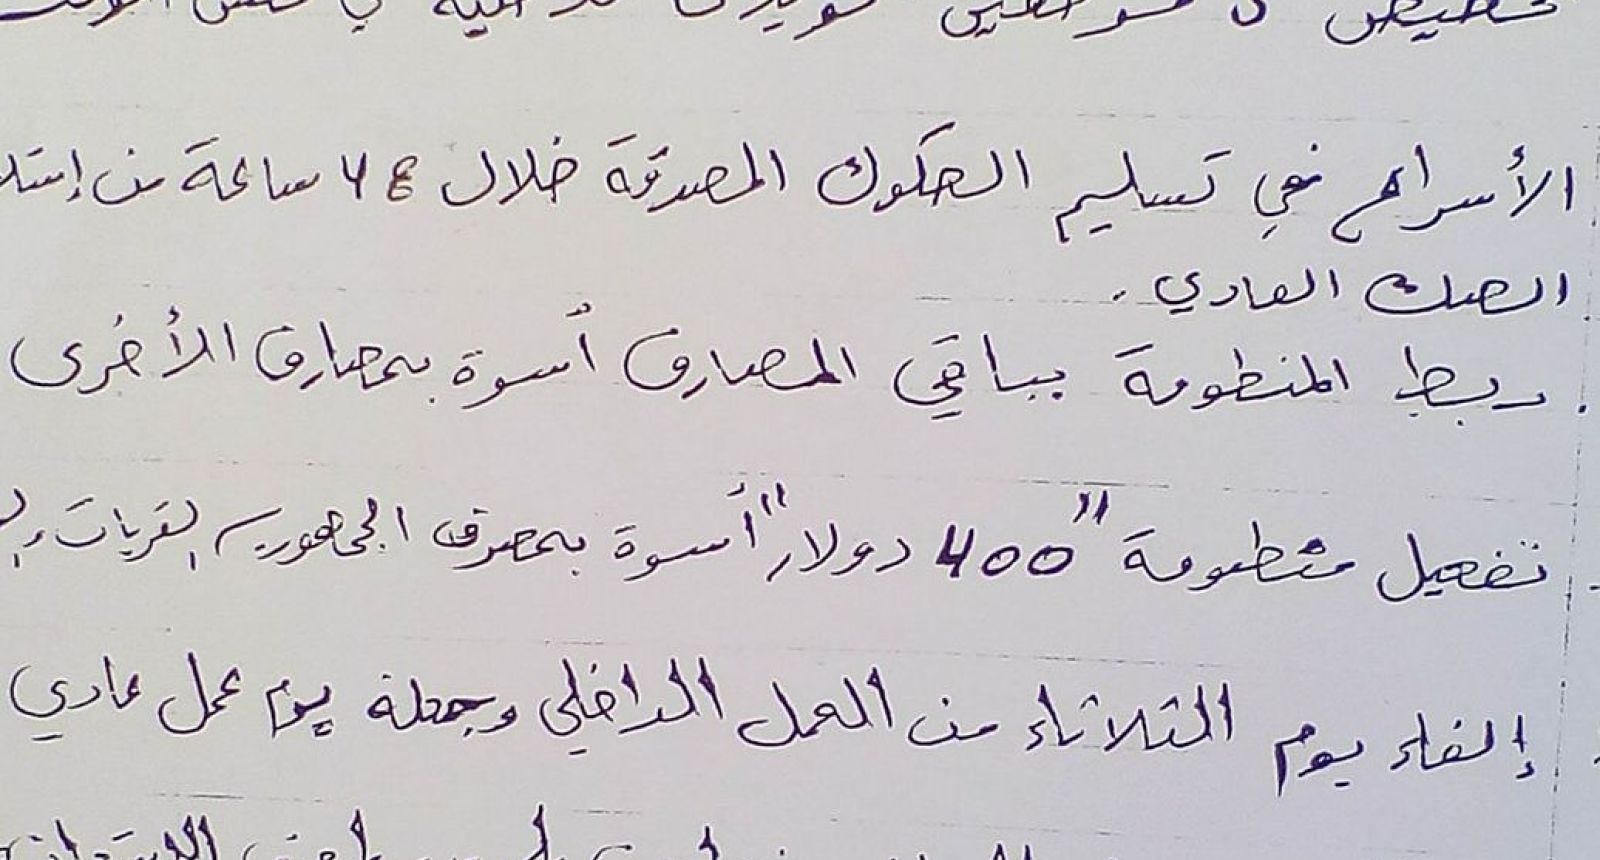 تخصيص
الأسراع في تسليم الصكوك المصدقة خلال 48 ساعة من إستلا
الصك العادي .
. ربط المنظومة بباقي المصارف أسوة بمصارف الأخرى
. تفعيل منظومة "400 دولار" أسوة بمصرف الجمهورية القريات
. إلغاء يوم الثلاثاء من العمل الداخلي وجعلة يوم عمل عادي